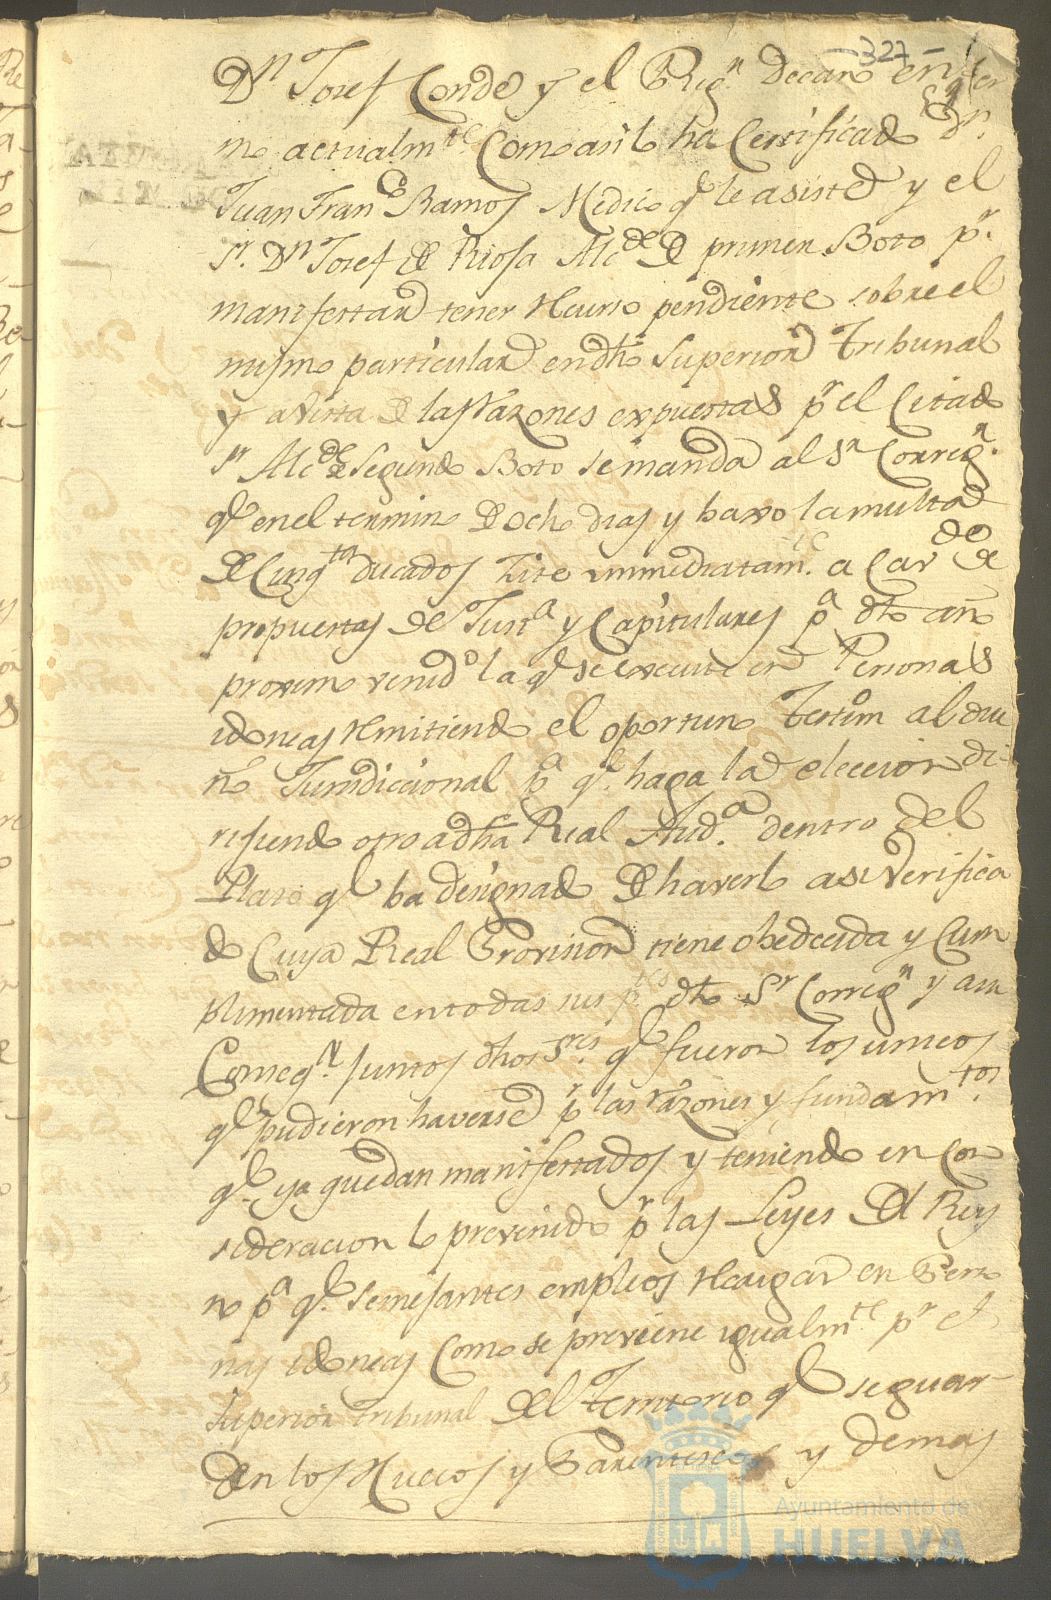 -327-
Dn Josef Conde y el Regn decano enfer
mo actualmte Como asi lo ha Certificado Dn
Juan Franco Ramos Medico qe le asiste y el
Sr. Dn Josef de Riosa Alcde de primer Boto pr.
manifestar tener Recurso pendiente sobre el
mismo particular en dho Superior Tribunal
y a Vista de las Razones expuestas pr el Citado
Sr Alcde de Segundo Boto se manda al Sr Corregr.
qe en el termino de ocho dias y baxo la multa
de Cinqta ducados Zite immediatamte. a Cavdo de
propuestas de Justa y Capitulares pa dho año
proximo venido la qe se execute en Personas
idoneas Remitiendo el oportuno Testimo al due
ño Jurisdiccional pa qe. haga la eleccion di-
rijiendo otro a dha Real Auda. dentro del
Plazo qe ha designado de haverlo asi Verifica
do Cuya Real Provision tiene obedecida y Cum
plimentada en todas sus ptes dho Sr Corregr y a su
Conseqa. juntos dhos Sres. qe fueron los unicos
qe pudieron haverse pr las razones y fundamtos.
qe ya quedan manifestados y teniendo en Con
sideracion lo prevenido pr las Leyes del Rey
no pa qe. semejantes empleos Recaigan en Perso
nas idoneas Como se previene igualmte pr el
Superior Tribunal del Territorio qe se guar
den los Huecos y Parentescos y demas
Ayuntamiento de
HUELVA